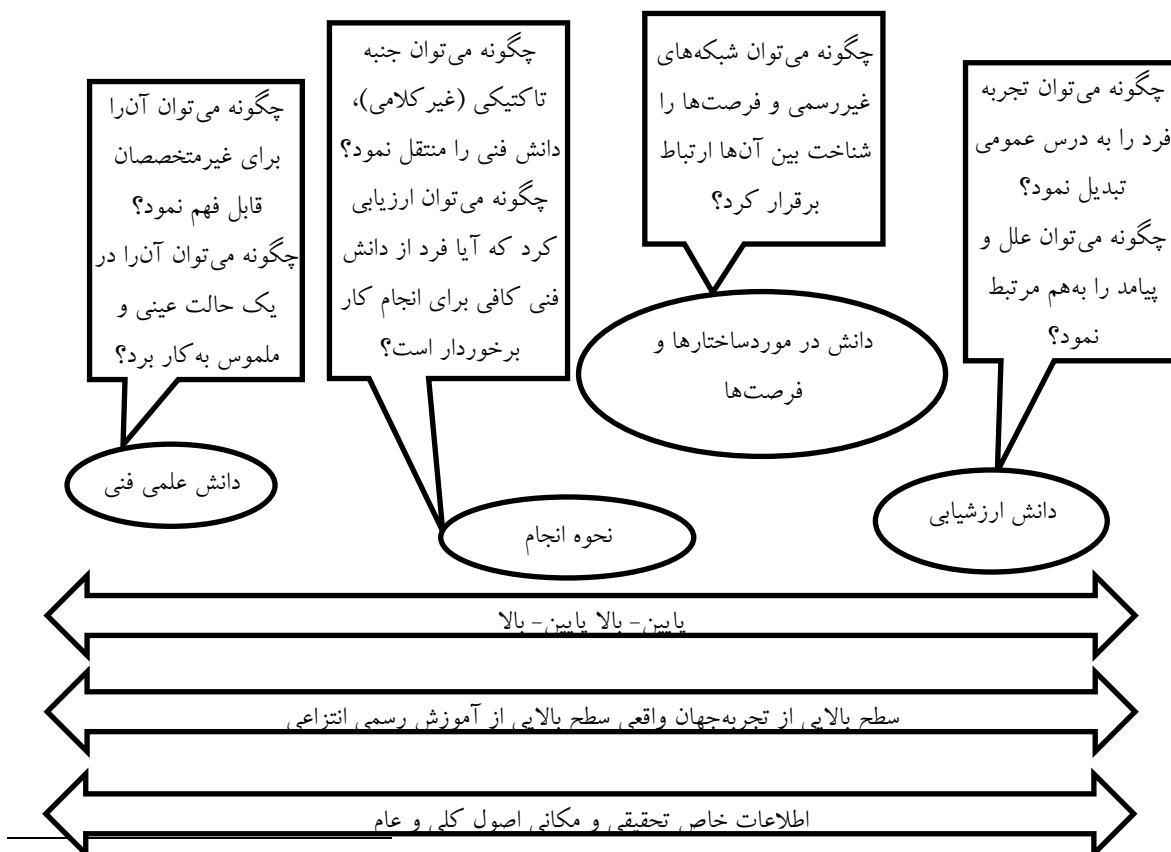 چگونه می‌توان تجربه
فرد را به درس عمومی
تبدیل نمود؟
چگونه می‌توان علل و
پیامد را به‌هم مرتبط
نمود؟
چگونه می‌توان شبکه‌های
غیررسمی و فرصت‌ها را
شناخت بین آن‌ها ارتباط
برقرار کرد؟
چگونه می‌توان جنبه
تاکتیکی (غیرکلامی)،
دانش فنی را منتقل نمود؟
چگونه می‌توان ارزیابی
کرد که آیا فرد از دانش
فنی کافی برای انجام کار
برخوردار است؟
چگونه می‌توان آن‌را
برای غیرمتخصصان
قابل فهم نمود؟
چگونه می‌توان آن‌را در
یک حالت عینی و
ملموس به‌کار برد؟
دانش ارزشیابی
دانش در موردساختارها و
فرصت‌ها
نحوه انجام
دانش علمی فنی
پایین- بالا پایین- بالا
سطح بالایی از تجربه‌جهان واقعی سطح بالایی از آموزش رسمی انتزاعی
اطلاعات خاص تحقیقی و مکانی اصول کلی و عام